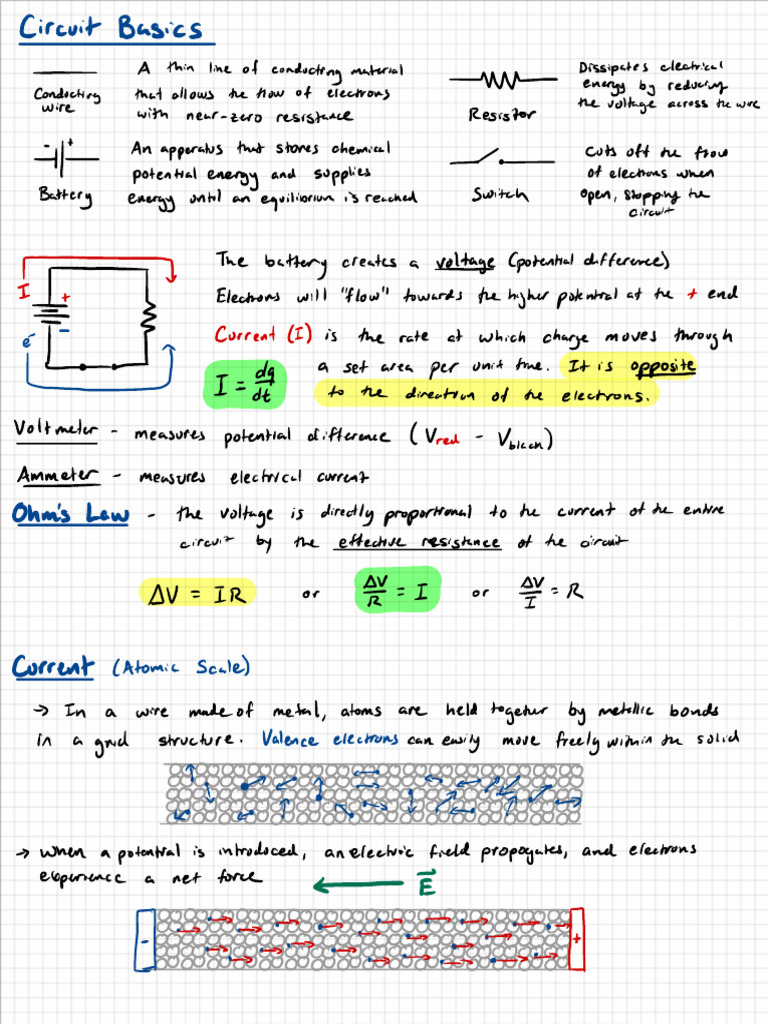 Circuit Basics
Conducting
wire
A thin line of conducting material
that allows the flow of electrons
with near-zero resistance
Resistor
Dissipates electrical
energy by reducing
the voltage across the wire
- +
Battery
An apparatus that stores chemical
potential energy and supplies
energy until an equilibrium is reached
Switch
Cuts off the flow
of electrons when
open, stopping the
circuit
I
+
-
e⁻
The battery creates a voltage (potential difference)
Electrons will "flow" towards the higher potential at the + end
Current (I) is the rate at which charge moves through
a set area per unit time. It is opposite
to the direction of the electrons.
I = dq/dt
Voltmeter - measures potential difference (Vred - Vblack)
Ammeter - measures electrical current
Ohm's Law - the voltage is directly proportional to the current of the entire
circuit by the effective resistance of the circuit
ΔV = IR or ΔV/R = I or ΔV/I = R
Current (Atomic Scale)
→ In a wire made of metal, atoms are held together by metallic bonds
in a grid structure. Valence electrons can easily move freely within the solid
→ When a potential is introduced, an electric field propogates, and electrons
experience a net force
E⃗
- +